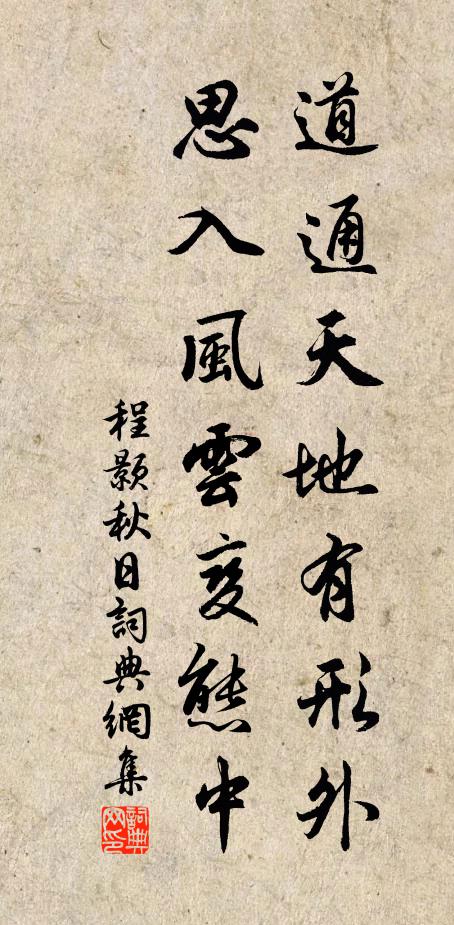 道通天地有形外
思入風雲变態中
程颢秋日詞典網集
詞典网印